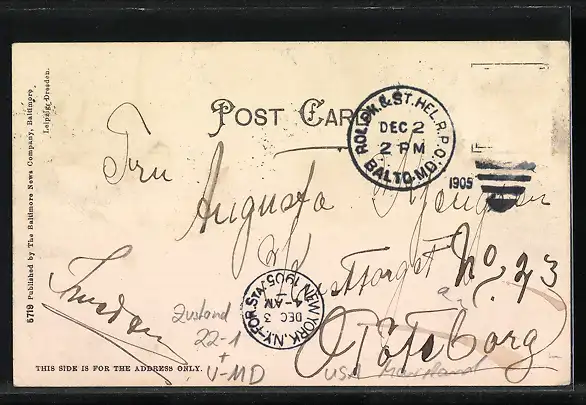 5719 Published by The Baltimore News Company, Baltimore
Leipzig-Dresden.
POST CARD
ROL.PK.& ST.HEL.R.P.O.
DEC 2
2 PM
BALTO.MD.
1905
Fru
Augusta
No. 23
Göteborg
Sweden
NEW YORK, N.Y.-FOR.STA.
DEC 3
4-AM
1905
Zustand
22-1
+
V-MD
USA Maryland
THIS SIDE IS FOR THE ADDRESS ONLY.